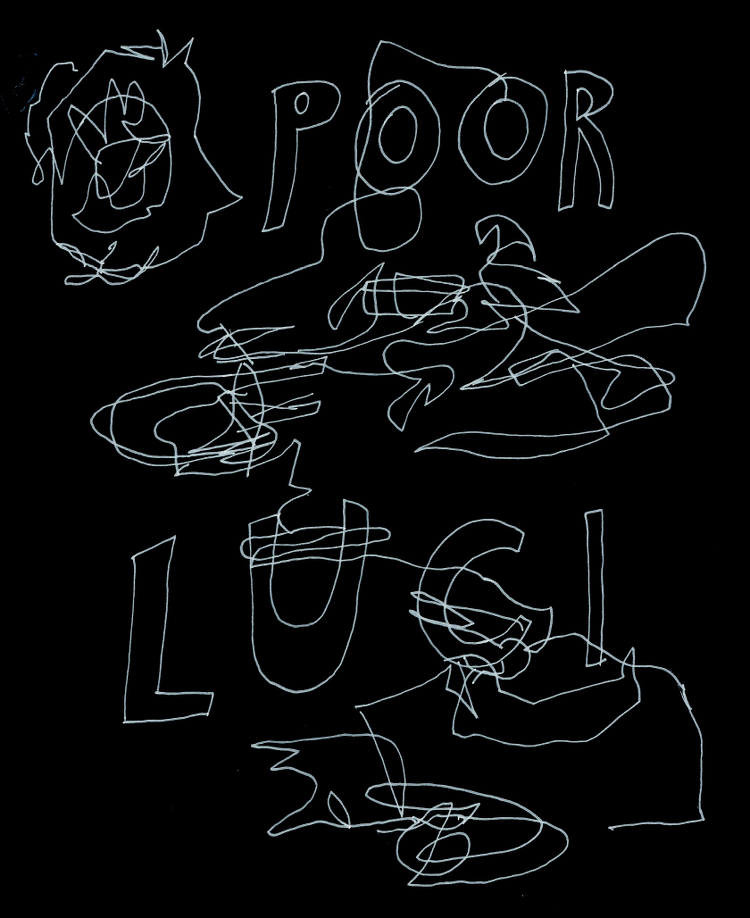 POOR
LUCI